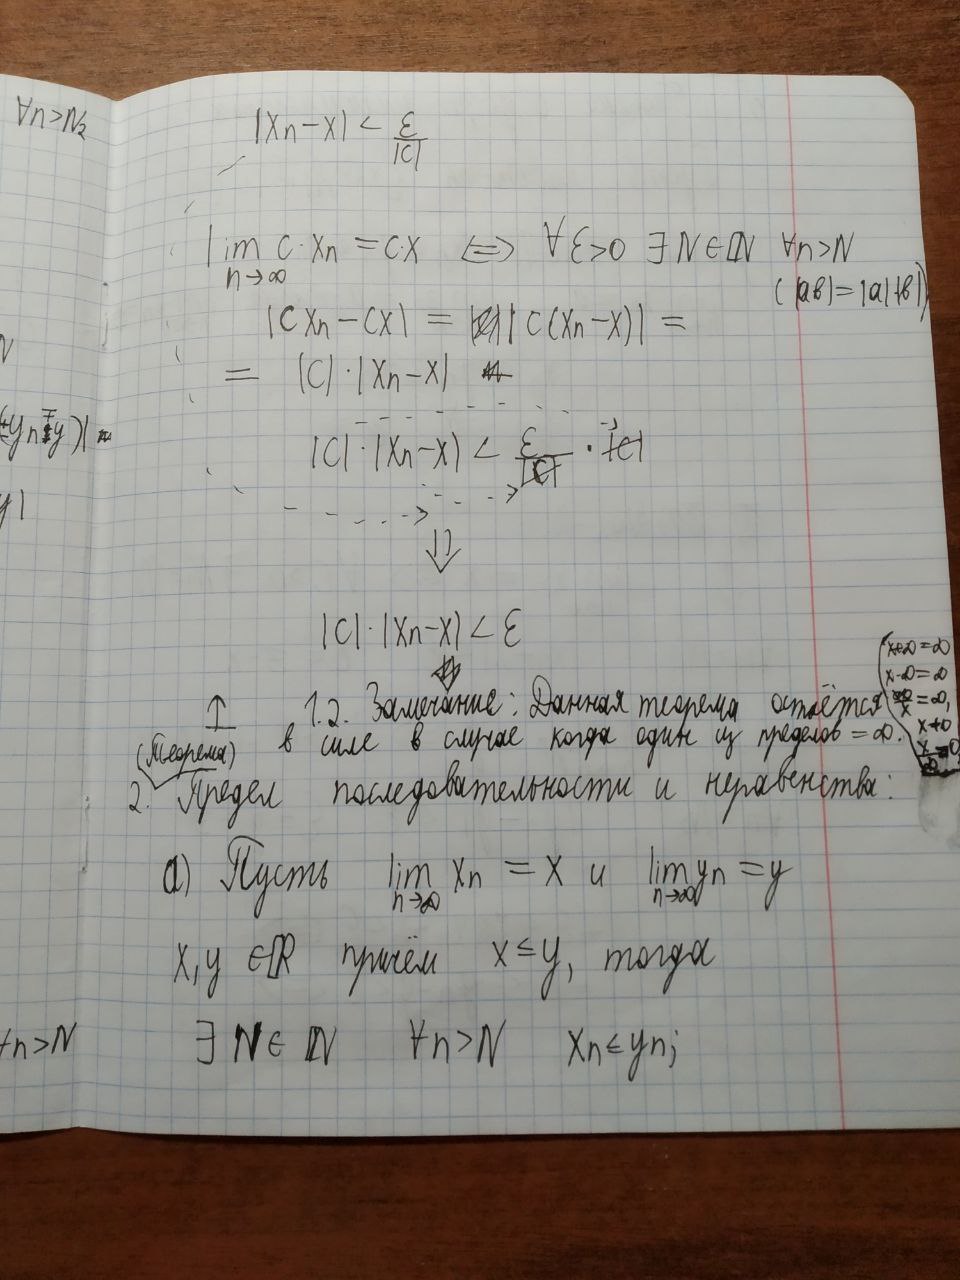 ∀n>N₂
|Xn-X| < ε/|C|
lim C·Xn = C·X ⟺ ∀ε>0 ∃N∈ℕ ∀n>N
n→∞
(|ab|=|a||b|)
|CXn-CX| = |C(Xn-X)| =
= |C|·|Xn-X|
|C|·|Xn-X| < ε/|C| · |C|
⇓
|C|·|Xn-X| < ε
1.2. Замечание: Данная теорема остаётся
в силе в случае когда один из пределов = ∞.
x+∞=∞
x-∞=∞
∞/x=∞,
x≠0
x/∞=0
(Теорема)
2. Предел последовательности и неравенства:
а) Пусть lim Xn = X и lim yn = y
n→∞ n→∞
X,y ∈ℝ причём X≤y, тогда
∀n>N
∃ N∈ℕ ∀n>N Xn≤yn;